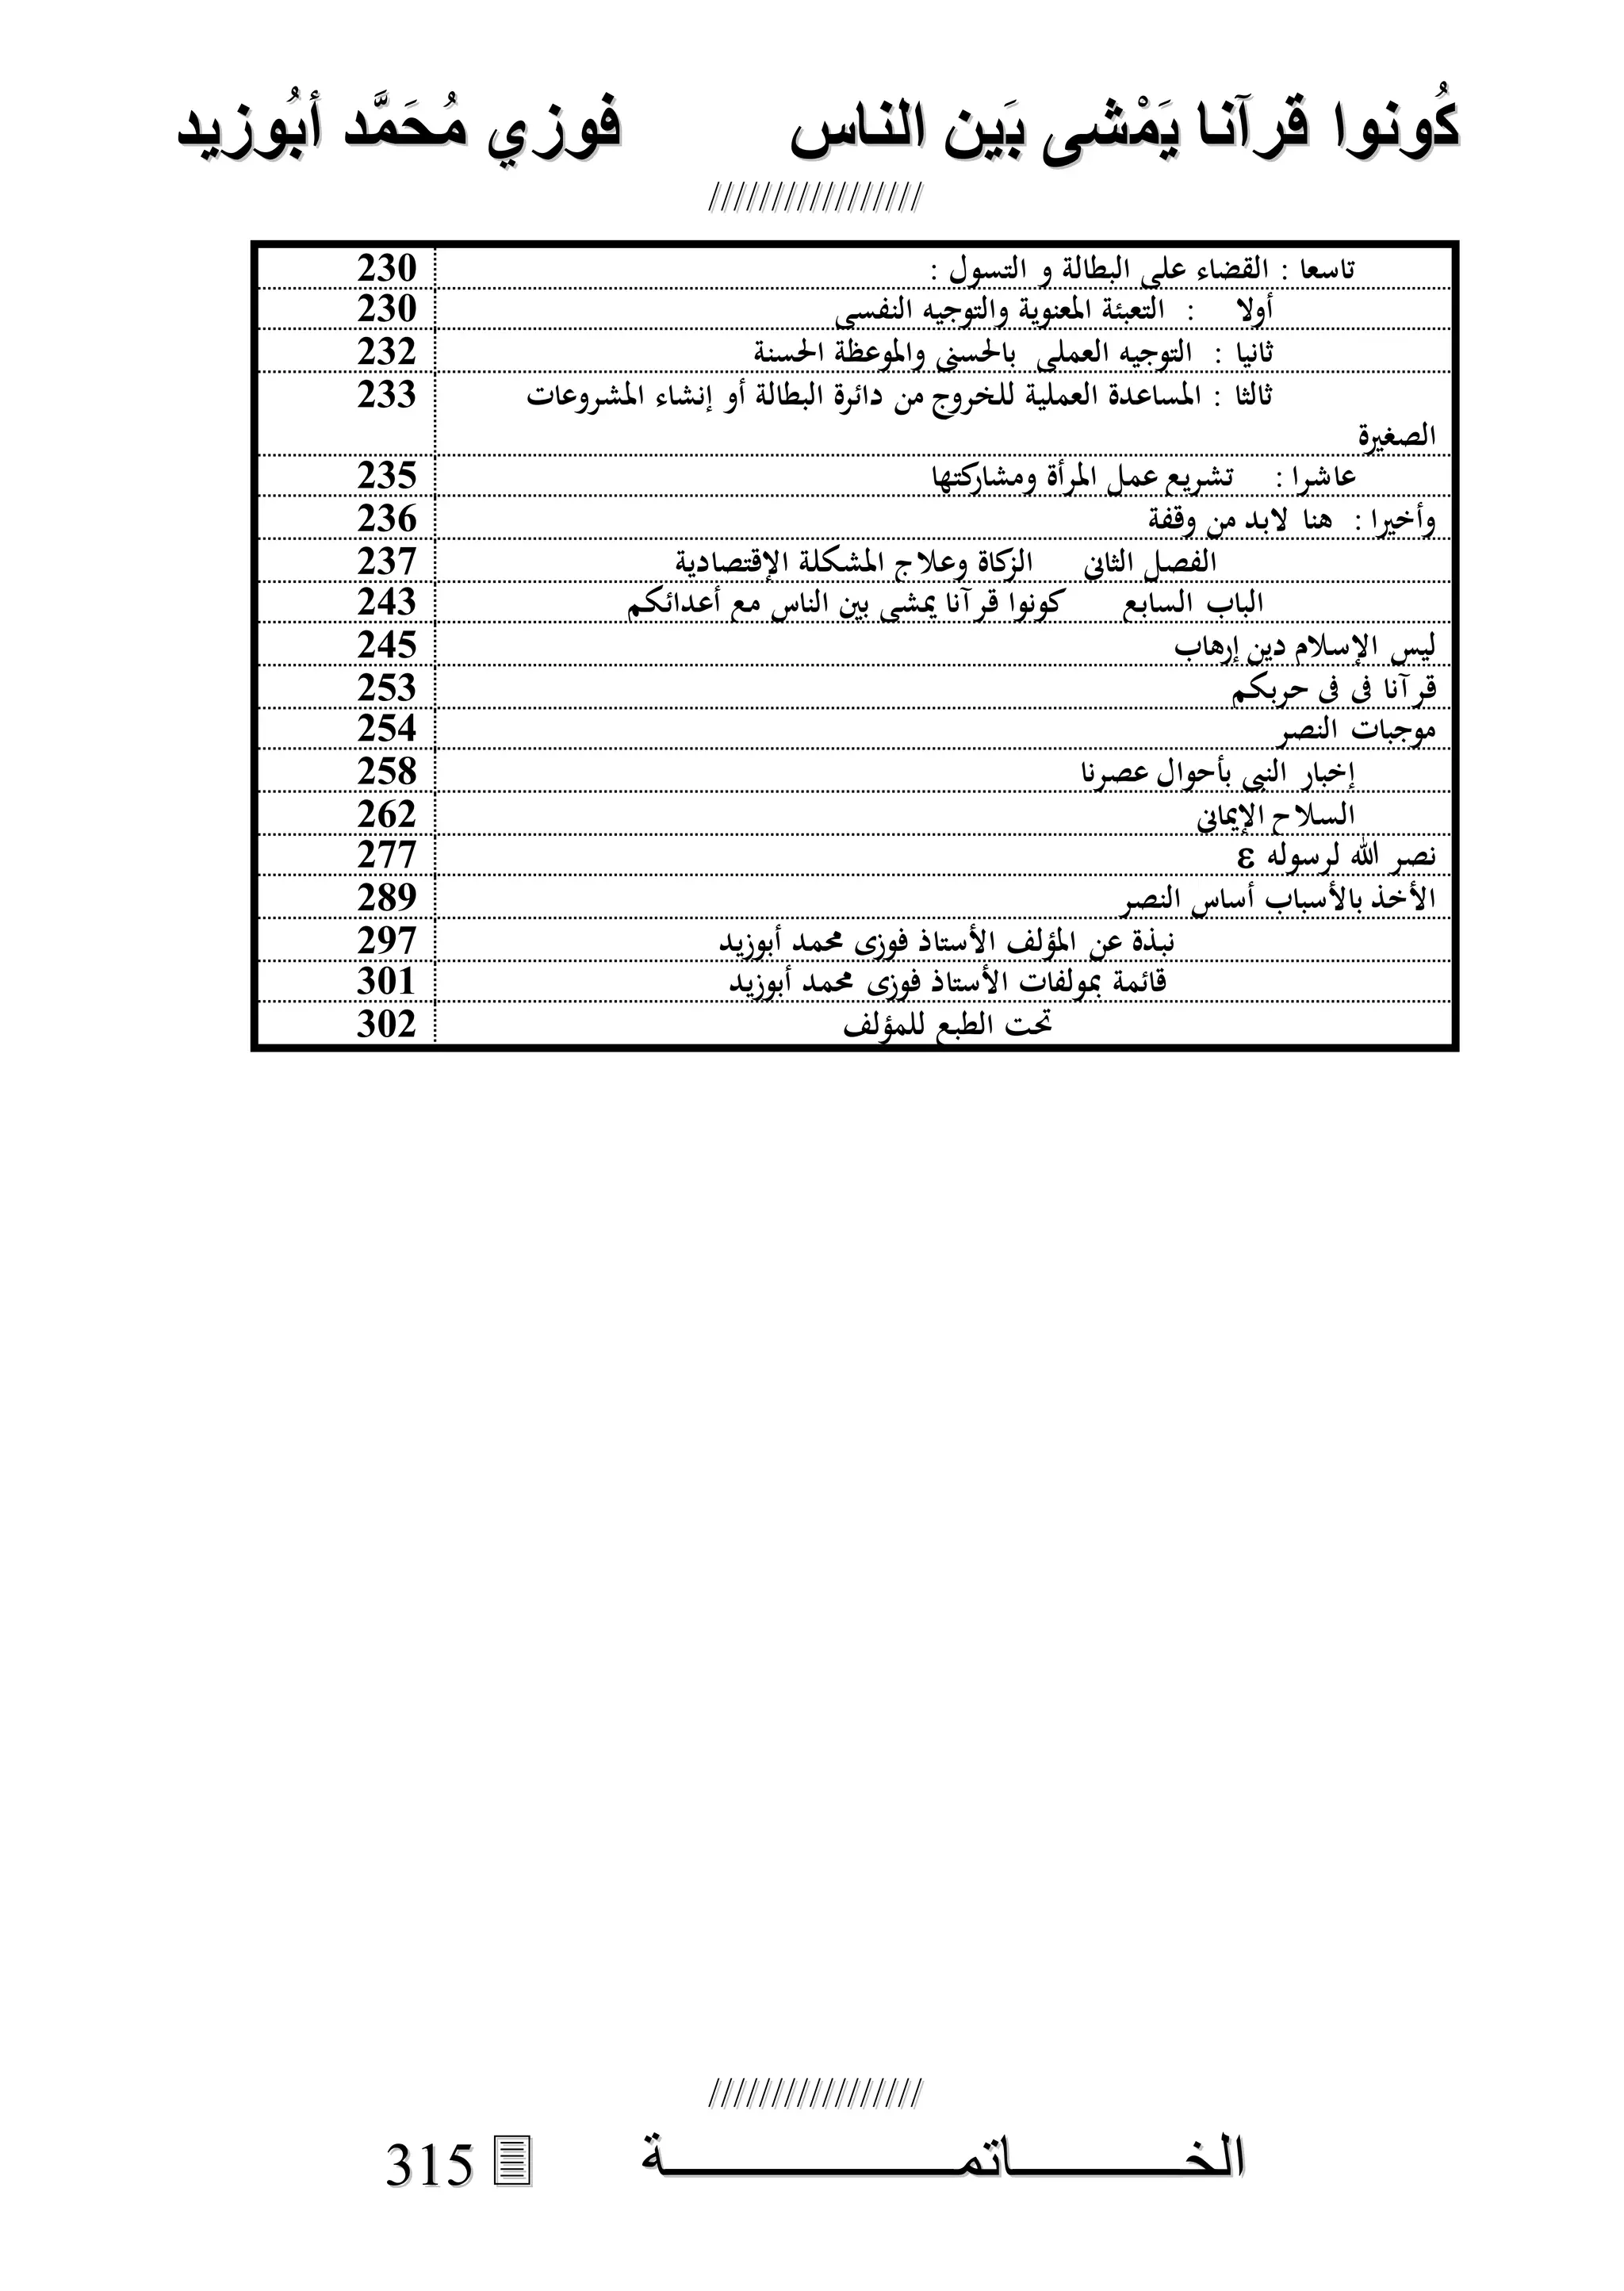 كُونوا قرآنا يَمْشى بَين الناس فوزي مُحَمَّد أبُوزيد
/////////////////
تاسعا : القضاء على البطالة و التسول : 230
أولا : التعبئة المعنوية والتوجيه النفسى 230
ثانيا : التوجيه العملى بالحسنى والموعظة الحسنة 232
ثالثا : المساعدة العملية للخروج من دائرة البطالة أو إنشاء المشروعات 233
الصغيرة
عاشرا : تشريع عمل المرأة ومشاركتها 235
وأخيرا : هنا لابد من وقفة 236
الفصل الثانى الزكاة وعلاج المشكلة الإقتصادية 237
الباب السابع كونوا قرآنا يمشى بين الناس مع أعدائكم 243
ليس الإسلام دين إرهاب 245
قرآنا فى فى حربكم 253
موجبات النصر 254
إخبار النبى بأحوال عصرنا 258
السلاح الإيمانى 262
نصر الله لرسوله ε 277
الأخذ بالأسباب أساس النصر 289
نبذة عن المؤلف الأستاذ فوزى محمد أبوزيد 297
قائمة بمولفات الأستاذ فوزى محمد أبوزيد 301
تحت الطبع للمؤلف 302
/////////////////
الخـــــــــاتمـــــــــــــــة 315